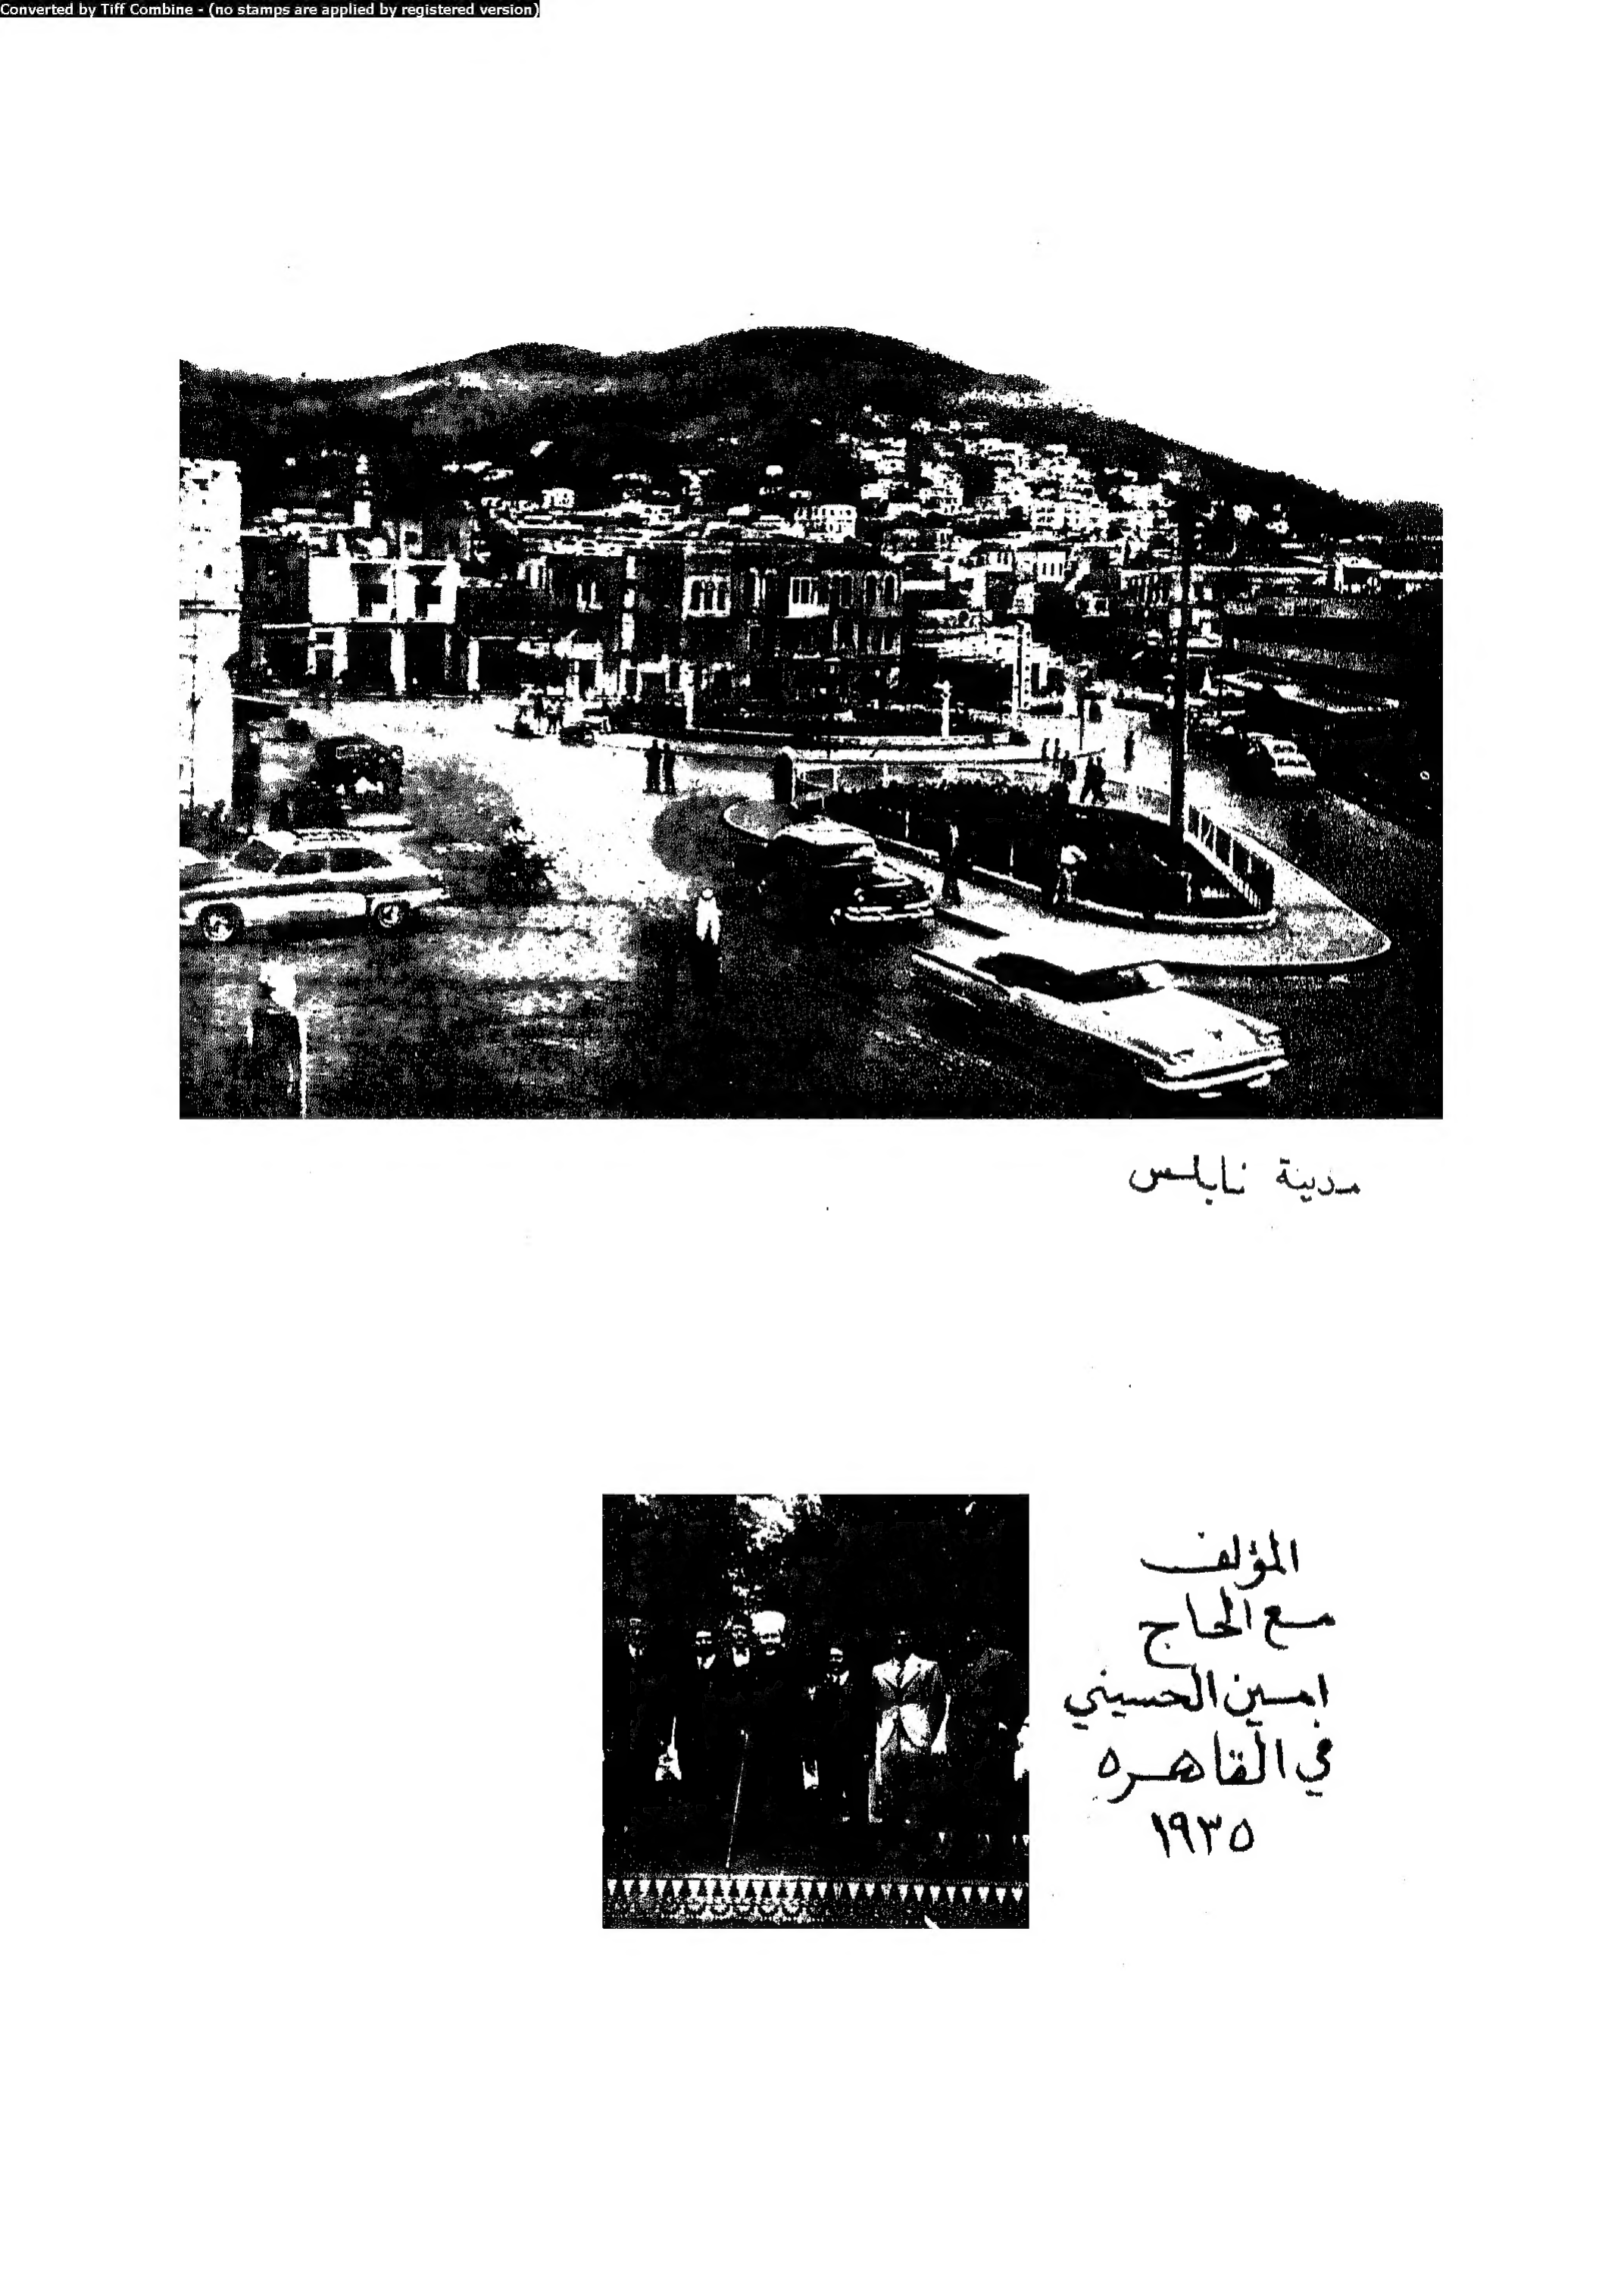 Converted by Tiff Combine - (no stamps are applied by registered version)
مدينة نابلس
المؤلف
مع الحاج
امين الحسيني
في القاهره
١٩٣٥